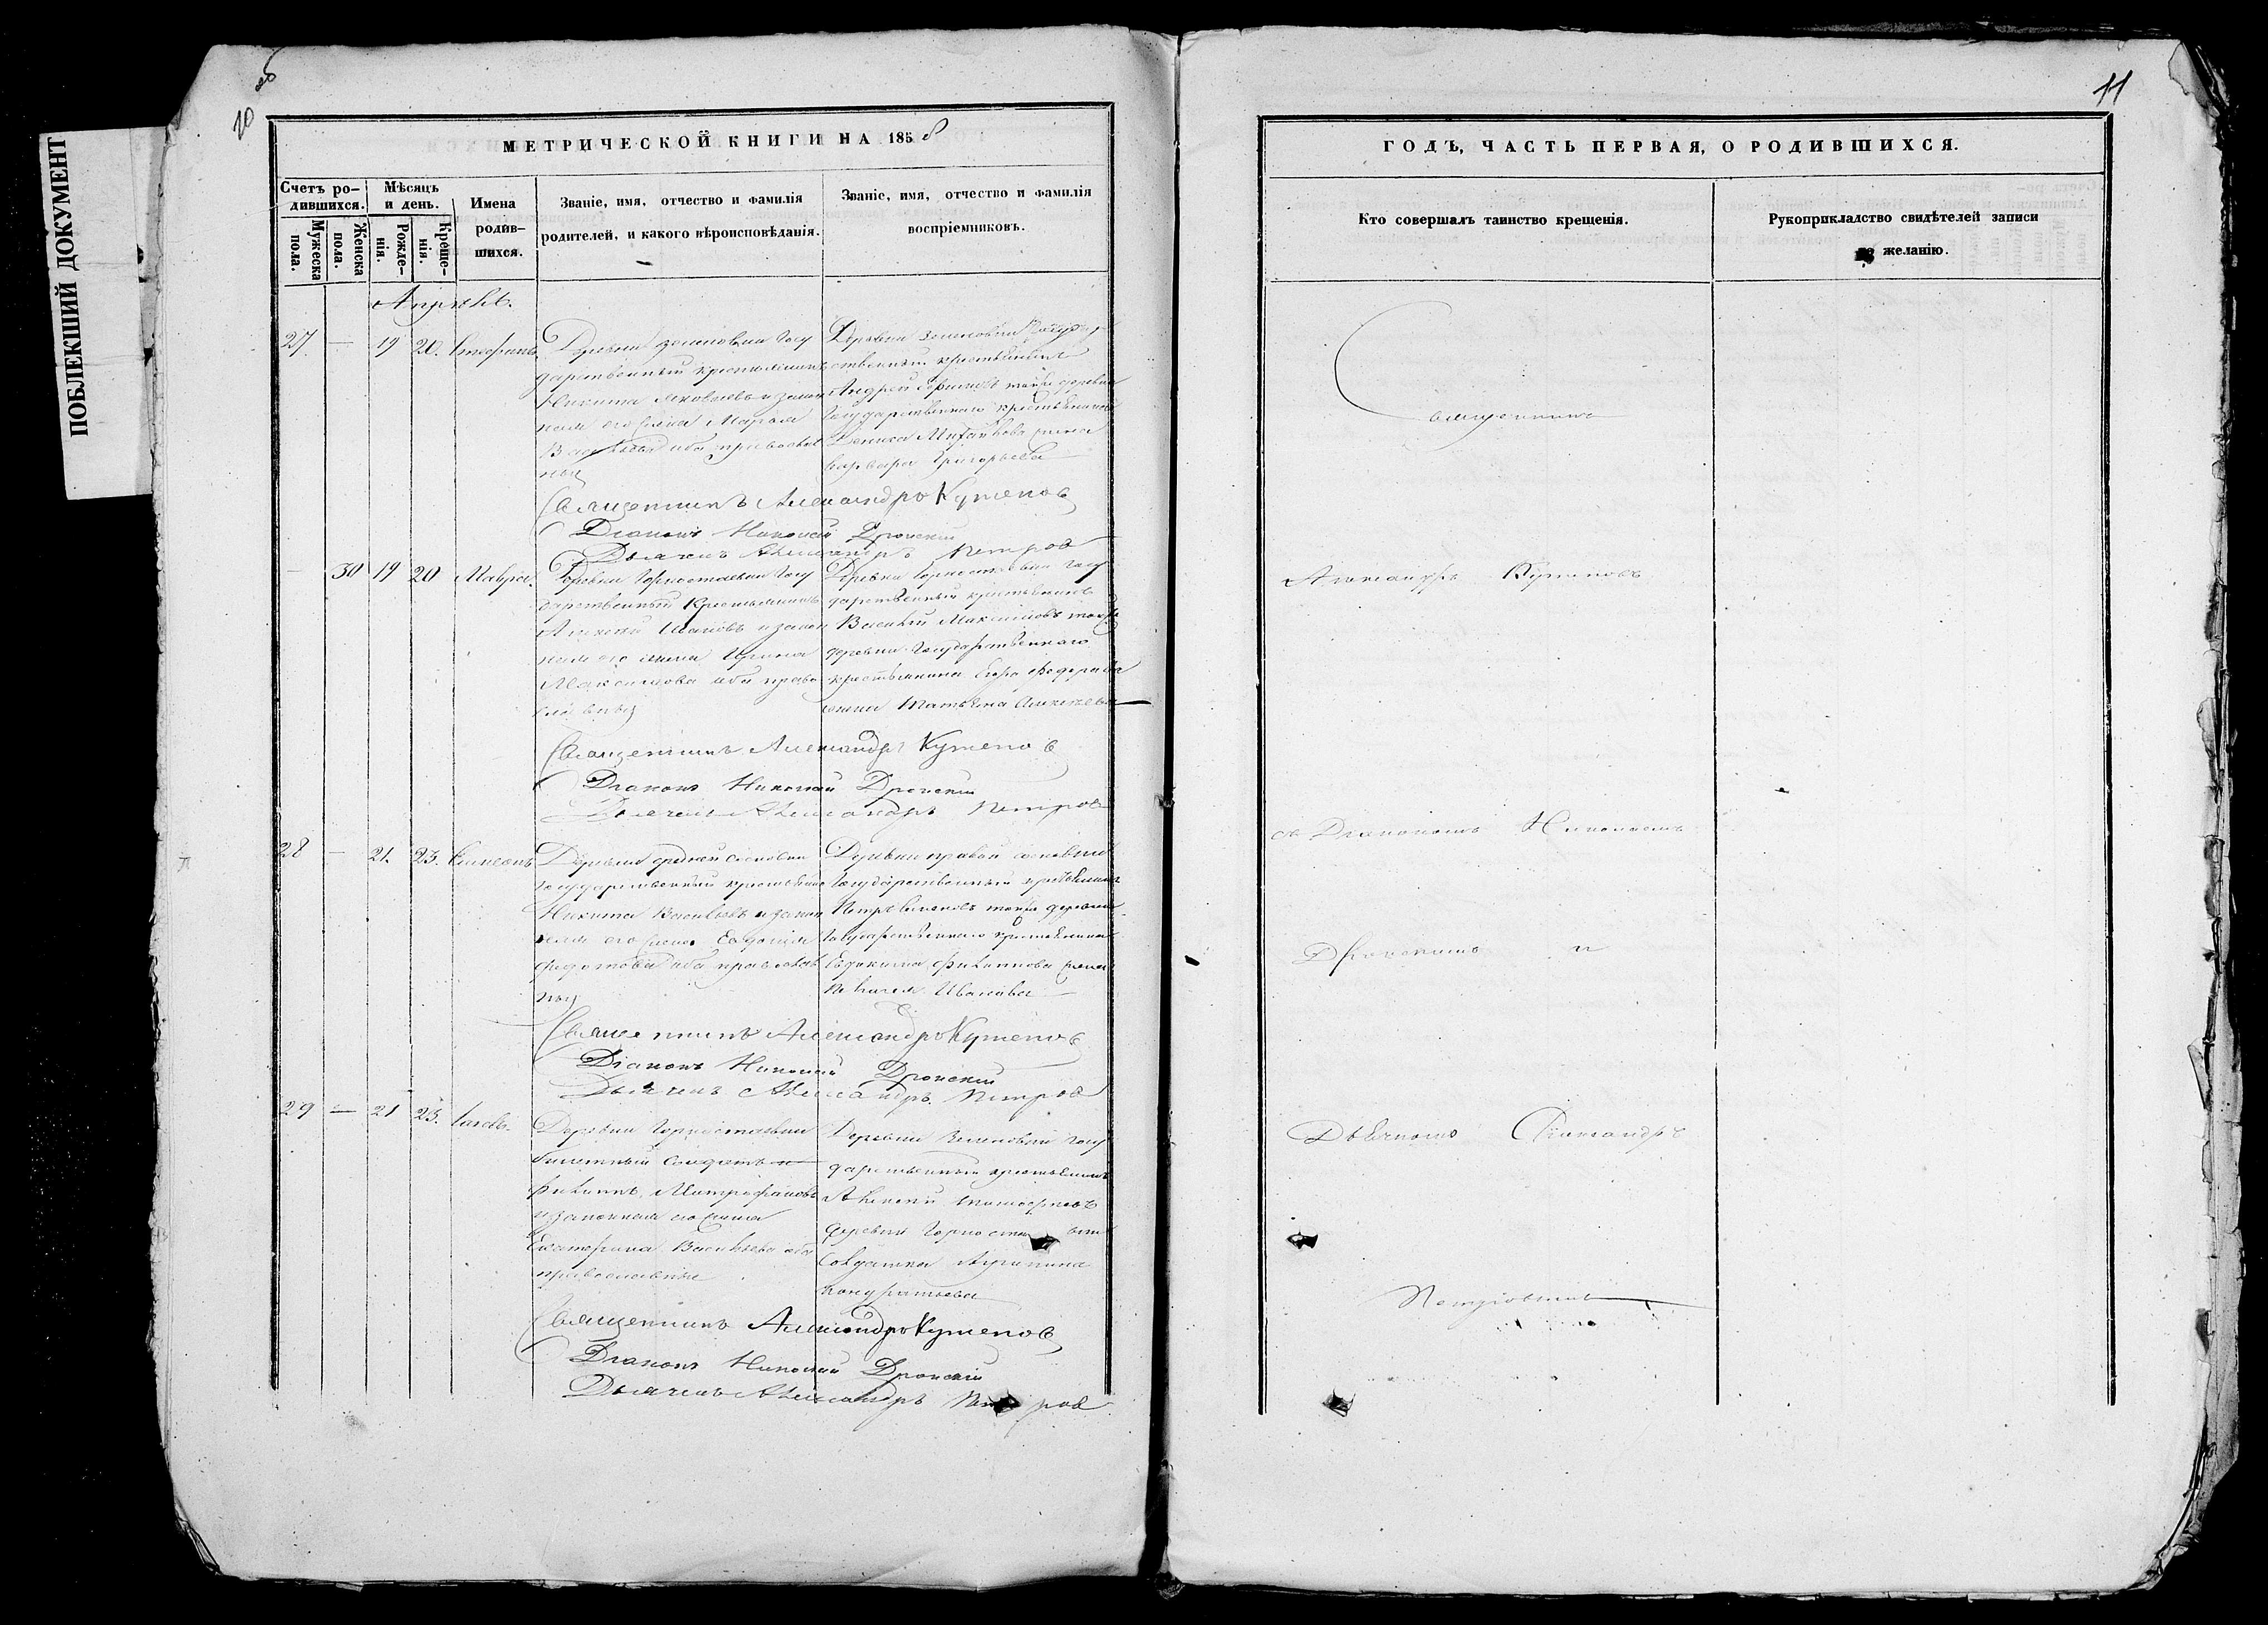 ПОБЛЕКШИЙ ДОКУМЕНТ
10 об
11
МЕТРИЧЕСКОЙ КНИГИ НА 1858
Счетъ ро-
дившихся.
Мужеска
пола.
Женска
пола.
Мѣсяцъ
и день.
Рожде-
нія.
Креще-
нія.
Имена
родив-
шихся.
Званіе, имя, отчество и фамилія
родителей, и какого вѣроисповѣданія.
Званіе, имя, отчество и фамилія
воспріемниковъ.
Апрѣль.
27 — 19 20. Стефанъ
Деревни Зеленовки Госу
дарственный крестьянинъ
Никита Яковлевъ и закон
ная его жена Марѳа
Васильева оба православ
ныя
Деревни Зеленовки Государ
ственный крестьянинъ
Андрей Ефимовъ тойже деревни
Государственнаго крестьянина
Дениса Михайлова жена
Варвара Григорьева
Священникъ Александръ Кутеповъ
Діаконъ Николай Дронскій
Дьячекъ Александръ Петровъ
— 30 19 20 Мавра.
Деревни Горностаевки Госу
дарственный Крестьянинъ
Алексѣй Ивановъ и закон
ная его жена Ирина
Максимова оба право
славныя
Деревни Горностаевки Госу
дарственный крестьянинъ
Василій Максимовъ тойже
деревни Государственнаго
крестьянина Егора Федорова
жена Татьяна Алексѣева
Священникъ Александръ Кутеповъ
Діаконъ Николай Дронскій
Дьячекъ Александръ Петровъ
28 — 21. 23. Симеонъ
Деревни средней
Государственный крестьянинъ
Никита Васильевъ и закон
ная его жена Евдокія
Федотова оба православ
ныя
Деревни правой
Государственный крестьянинъ
Петръ тойже деревни
Государственнаго крестьянина
Евдокима Филиппова жена
Пелагея Иванова
Священникъ Александръ Кутеповъ
Діаконъ Николай Дронскій
Дьячекъ Александръ Петровъ
29 — 21 23. Іаковъ.
Деревни Горностаевки
билетный солдатъ
Филиппъ Митрофановъ
и законная его жена
Екатерина Васильева оба
православныя
Деревни Зеленовки Госу
дарственный крестьянинъ
Алексѣй Тимофеевъ
деревни Горностаевки
Солдатка Агрипина
Кондратьева
Священникъ Александръ Кутеповъ
Діаконъ Николай Дронскій
Дьячекъ Александръ Петровъ
ГОДЪ, ЧАСТЬ ПЕРВАЯ, О РОДИВШИХСЯ.
Кто совершалъ таинство крещенія.
Рукоприкладство свидѣтелей записи
по желанію.
Священникъ
Александръ Кутеповъ
съ Діакономъ Николаемъ
Дронскимъ и
Дьячкомъ Александръ
Петровымъ